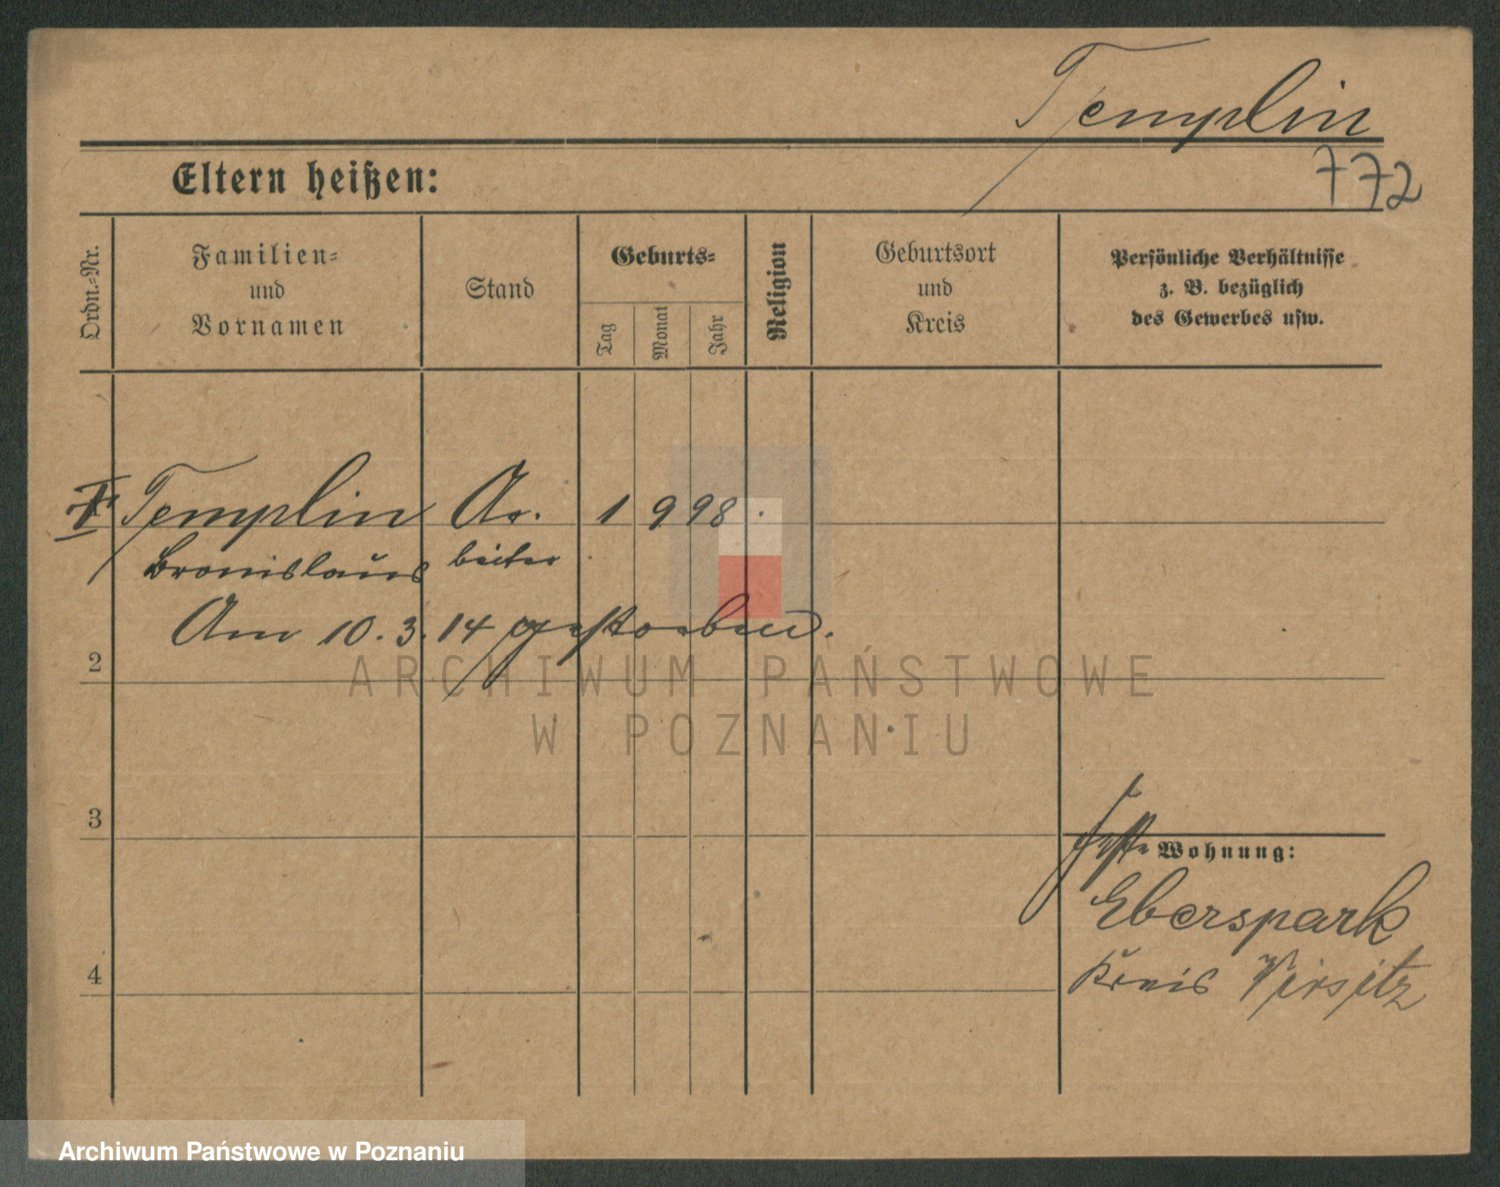 Templin
772
Eltern heißen:
Ordn.-Nr.
Familien-
und
Vornamen
Stand
Geburts-
Tag
Monat
Jahr
Religion
Geburtsort
und
Kreis
Persönliche Verhältnisse
z. B. bezüglich
des Gewerbes usw.
Templin Ar. 1 9 98.
Bronislaus beiter
Am 10.3.14 gestorben.
2
ARCHIWUM PAŃSTWOWE
W POZNANIU
3
feste Wohnung:
Eberspark
4
Kreis Wirsitz
Archiwum Państwowe w Poznaniu